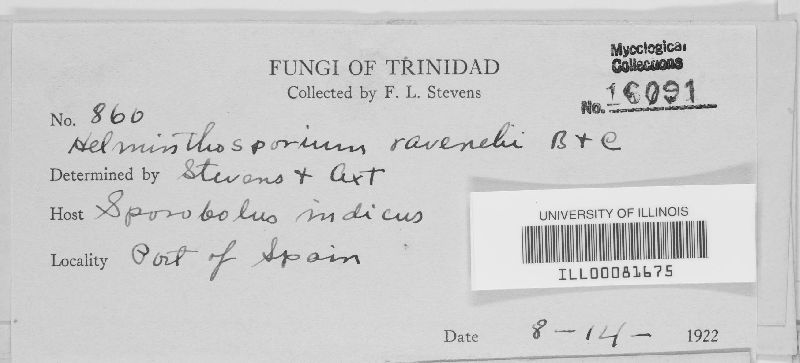 FUNGI OF TRINIDAD
Collected by F. L. Stevens
Mycological
Collections
No. 16091
No. 860
Helminthosporium ravenelii B + C
Determined by Stevens +
Host Sporobolus indicus
Locality Port of Spain
UNIVERSITY OF ILLINOIS
ILL00081675
Date 8-14- 1922